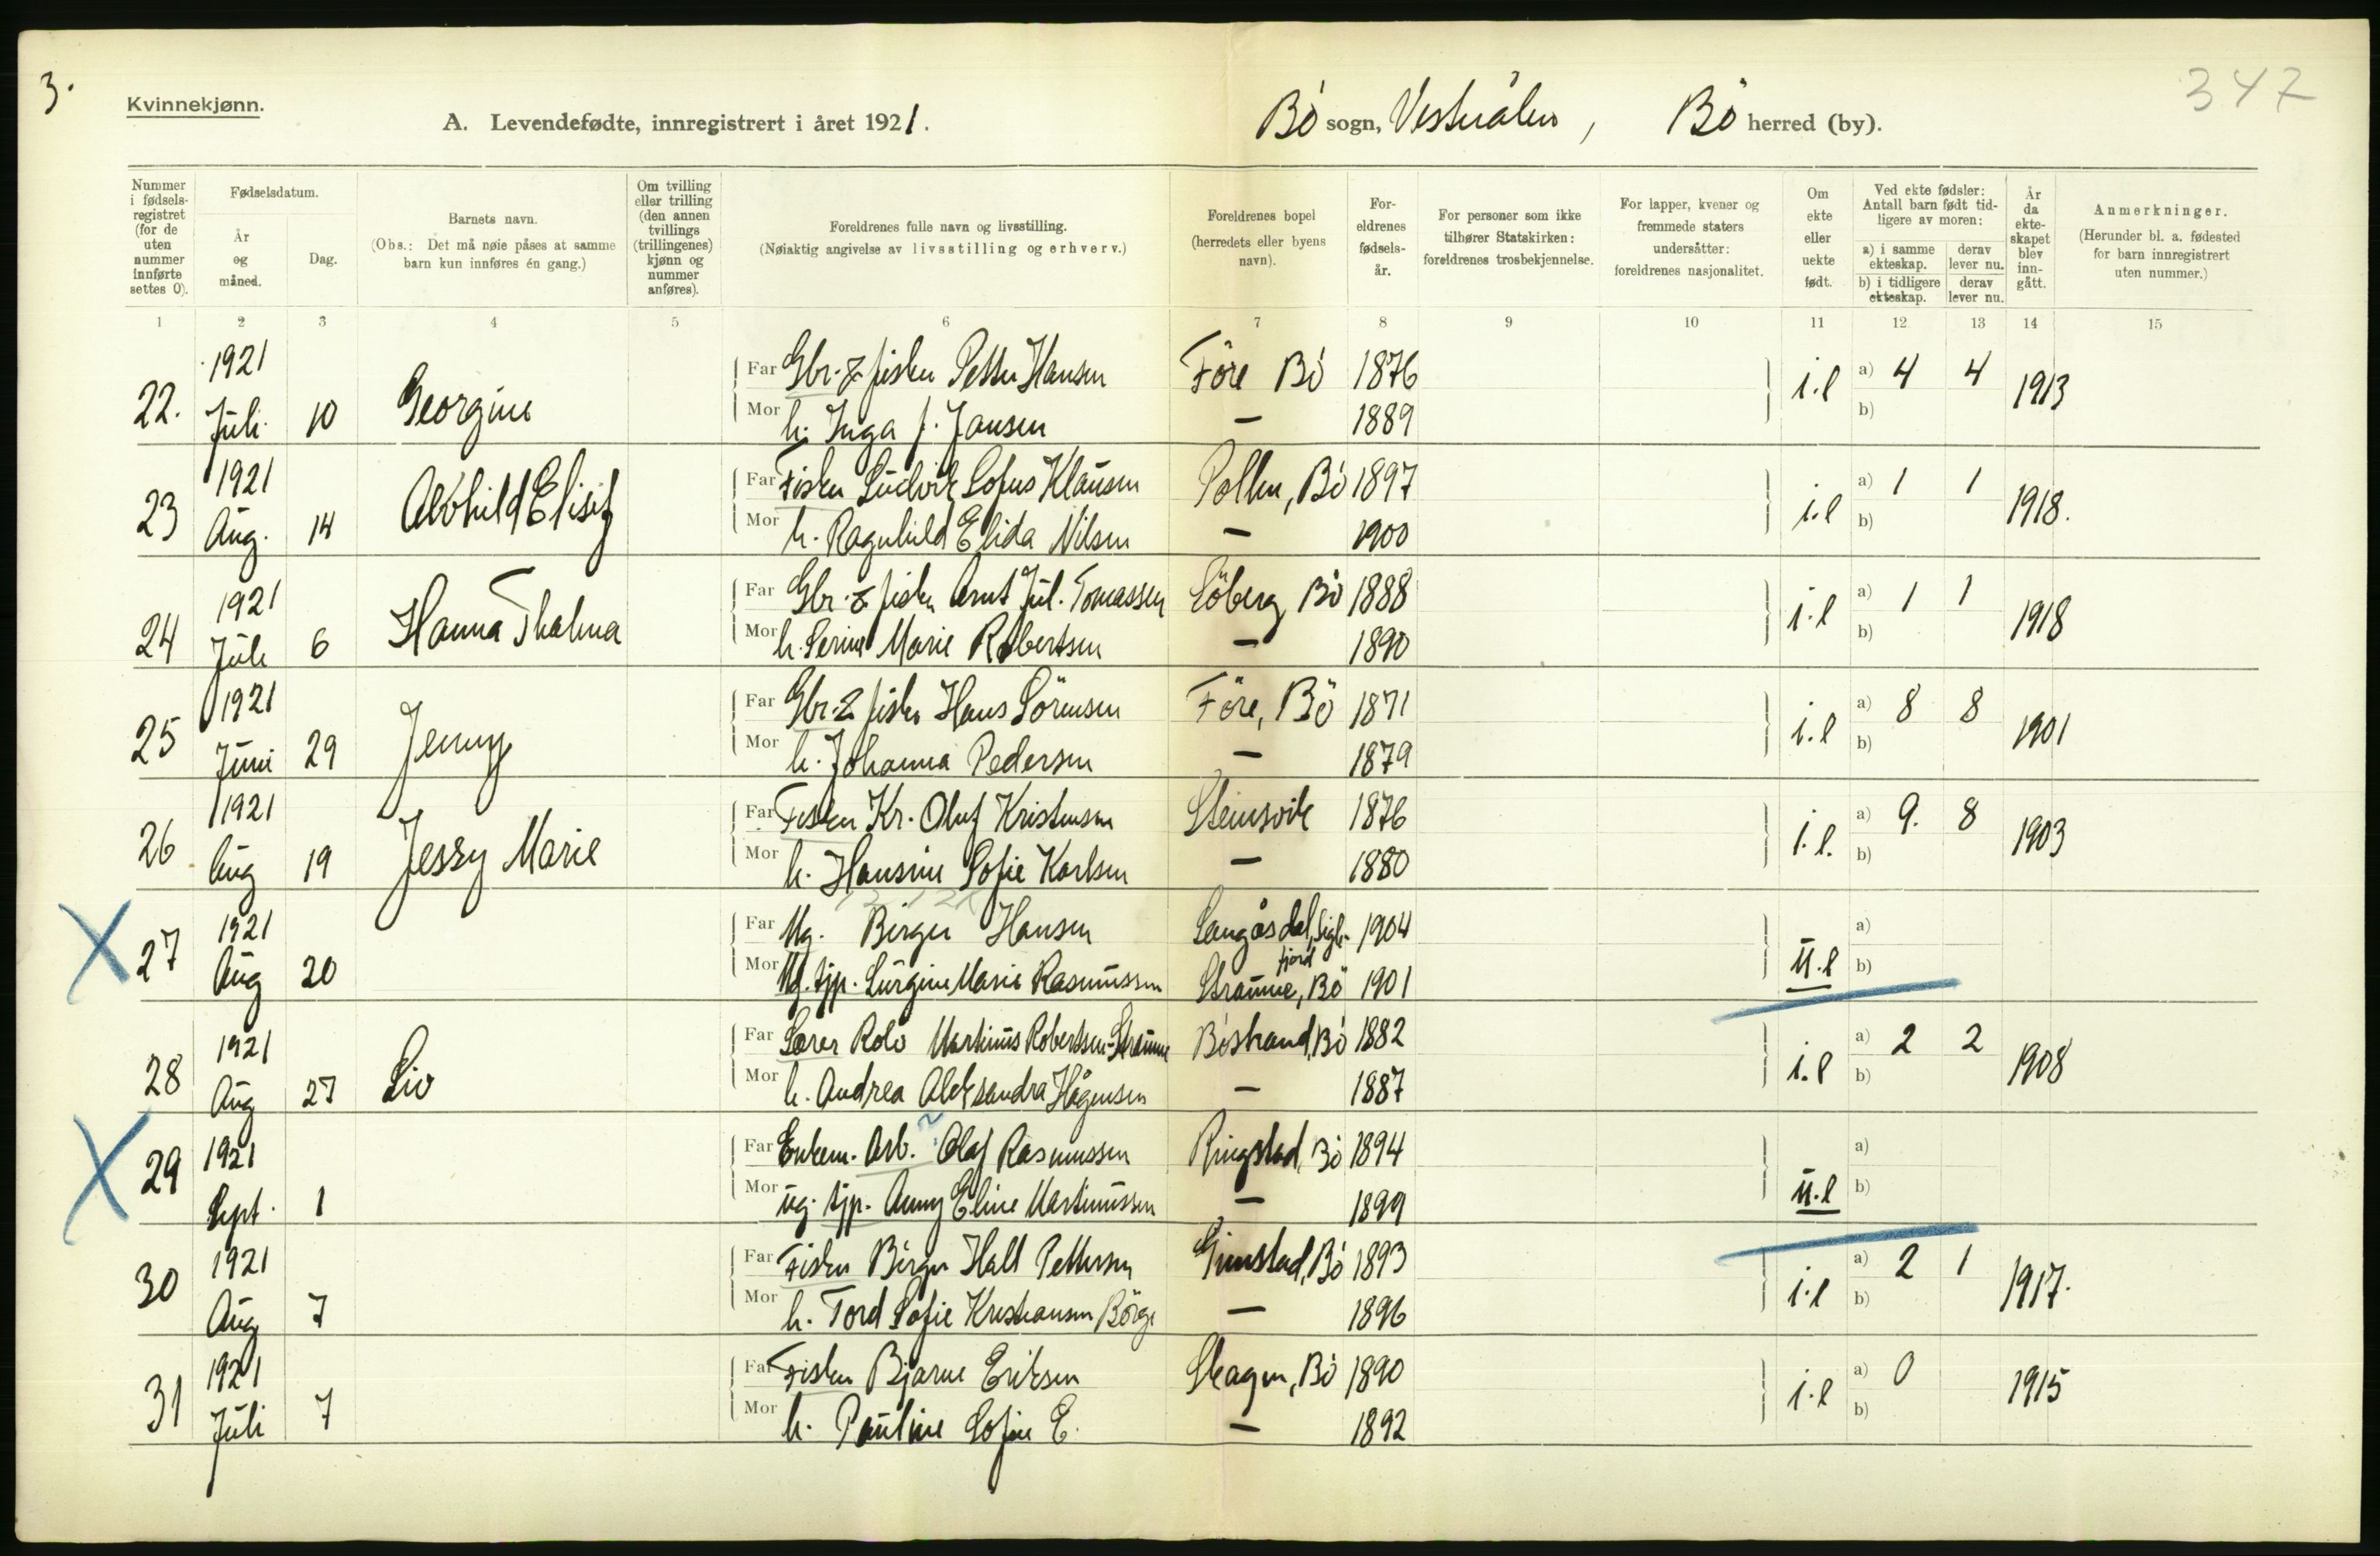 3.
Kvinnekjønn.
A. Levendefødte, innregistrert i året 1921.
Bö sogn, Vesterålen, Bö herred (by).
347
Nummer i fødselsregistret (for de uten nummer innførte settes 0).
Fødselsdatum.
År og måned.
Dag.
Barnets navn.
(Obs.: Det må nøie påses at samme barn kun innføres én gang.)
Om tvilling eller trilling (den annen tvillings (trillingenes) kjønn og nummer anføres).
Foreldrenes fulle navn og livsstilling.
(Nøiaktig angivelse av livsstilling og erhverv.)
Foreldrenes bopel (herredets eller byens navn).
Foreldrenes fødselsår.
For personer som ikke tilhører Statskirken: foreldrenes trosbekjennelse.
For lapper, kvener og fremmede staters undersåtter: foreldrenes nasjonalitet.
Om ekte eller uekte født.
Ved ekte fødsler: Antall barn født tidligere av moren:
a) i samme ekteskap. derav lever nu.
b) i tidligere ekteskap. derav lever nu.
År da ekteskapet blev inngått.
Anmerkninger.
(Herunder bl. a. fødested for barn innregistrert uten nummer.)
1 2 3 4 5 6 7 8 9 10 11 12 13 14 15
22. 1921 Juli 10 Georgine
Far Gbr. & fisker Petter Hansen Före Bö 1876 i.l a) 4 4 1913
Mor h. Inga J. Jansen — 1889 b)
23 1921 Aug. 14 Alvhild Elisif
Far Fisker Ludvik Sofus Klausen Pollen, Bö 1897 i.l a) 1 1 1918.
Mor h. Ragnhild Elida Nilsen — 1900 b)
24 1921 Juli 6 Hanna Thalma
Far Gbr. & fisker Arnt Jul. Tomassen Söberg Bö 1888 i.l a) 1 1 1918
Mor h. Serine Marie Robertsen — 1890 b)
25 1921 Juni 29 Jenny
Far Gbr. & fisker Hans Sörensen Före, Bö 1871 i.l a) 8 8 1901
Mor h. Johanna Pedersen — 1879 b)
26 1921 Aug 19 Jessy Marie
Far Fisker Kr. Oluf Kristensen Steinsvik 1876 i.l. a) 9. 8 1903
Mor h. Hansine Sofie Karlsen — 1880 b)
27 1921 Aug 20
Far Ug. Birger Hansen Langåsdal, Siglfjord 1904 u.l a)
Mor Ug. tjp. Surgine Marie Rasmussen Straume, Bö 1901 b)
28 1921 Aug 27 Liv
Far Lærer Rolv Martinus Robertsen-Straume Böstrand, Bö 1882 i.l a) 2 2 1908
Mor h. Andrea Aleksandra Hågensen — 1887 b)
29 1921 Sept. 1
Far Enkem. Arb. Olaf Rasmussen Ringstad, Bö 1894 u.l a)
Mor ug. tjp. Anny Eline Martinussen — 1899 b)
30 1921 Aug 7
Far Fisker Birger Hall Pettersen Guustad, Bö 1893 i.l a) 2 1 1917.
Mor h. Tord Sofie Kristiansen Börge — 1896 b)
31 1921 Juli 7
Far Fisker Bjarne Eriksen Skagen, Bö 1890 i.l a) 0 1915
Mor h. Pauline Sofie E. — 1892 b)